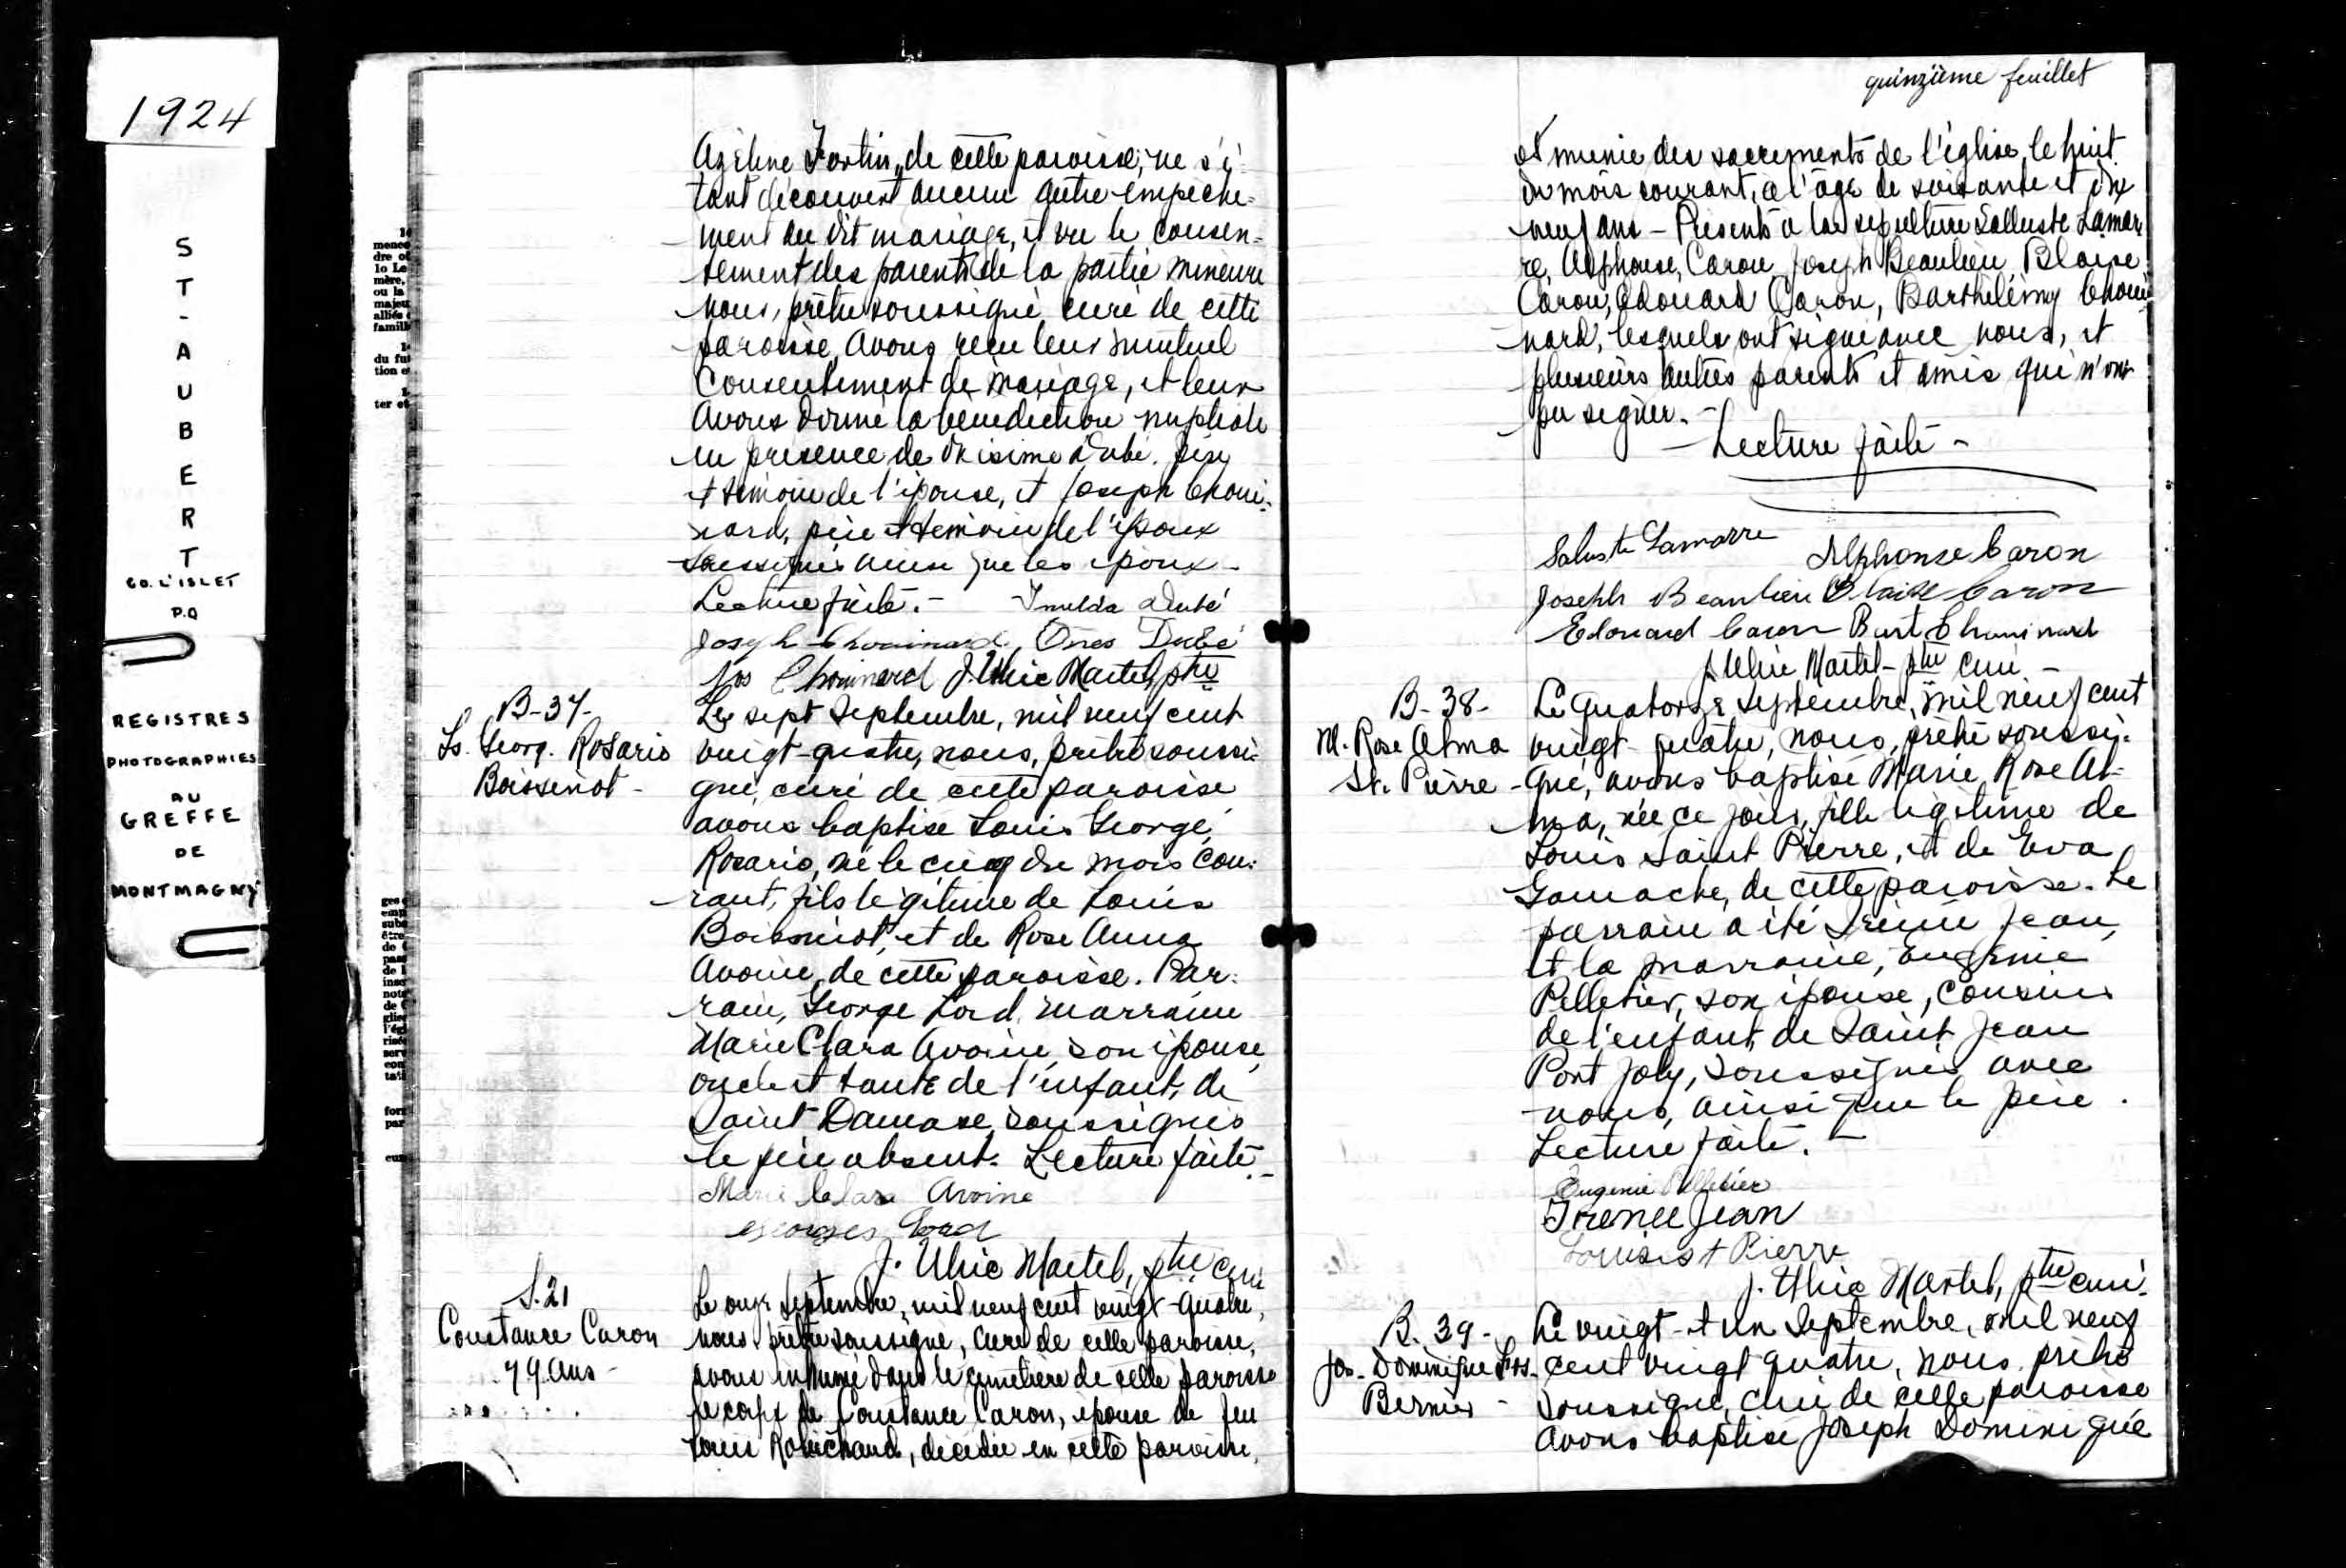 1924
ST-AUBERT
CO. L'ISLET
P.Q
REGISTRES
PHOTOGRAPHIES
AU
GREFFE
DE
MONTMAGNY
Azéline Fortin, de cette paroisse; ne s'é-
tant découvert aucun autre empêche-
ment au dit mariage, et vu le consen-
tement des parents de la partie mineure
nous, prêtre soussigné curé de cette
paroisse, avons reçu leur mutuel
consentement de mariage, et leur
avons donné la bénédiction nuptiale
en présence de Onésime Dubé, père
et témoin de l'épouse, et Joseph Choui-
nard, père et témoin de l'époux
soussignés ainsi que les époux-
Lecture faite.- Imelda Dubé
Joseph Chouinard, Ones Dubé
Jos Chouinard J. Ulric Martel, ptre
B-37-
Ls. Georg. Rosario
Boissinot-
Le sept Septembre, mil neuf cent
vingt-quatre, nous, prêtre soussi-
gné, curé de cette paroisse
avons baptisé Louis George,
Rosario, né le cinq du mois cou-
rant, fils légitime de Louis
Boissinot, et de Rose Anna
Avoine, de cette paroisse. Par-
rain, George Lord, marraine
Marie Clara Avoine, son épouse,
oncle et tante de l'enfant, de
Saint Damase, soussignés
le père absent. Lecture faite.-
Marie Clara Avoine
Georges Lord
J. Ulric Martel, ptre curé
S.21
Constance Caron
79 Ans-
Le onze Septembre, mil neuf cent vingt-quatre,
nous prêtre soussigné, curé de cette paroisse,
avons inhumé dans le cimetière de cette paroisse
le corps de Constance Caron, épouse de feu
Louis Robichaud, décédée en cette paroisse,
quinzième feuillet
et munie des sacrements de l'église, le huit
du mois courant, à l'âge de soixante et dix
neuf ans - Présents à la sépulture Salluste Lamar
re, Alphonse, Caron Joseph Beaulieu, Blaise
Caron, Edouard Caron, Barthélémy Choui-
nard, lesquels ont signé avec nous, et
plusieurs autres parents et amis qui n'ont
pu signer.-
-Lecture faite-
Saluste Lamarre Alphonse Caron
Joseph Beaulieu Blaise Caron
Edouard Caron Bart Chouinard
J. Ulric Martel- ptre curé-
B-38-
M. Rose Alma
St. Pierre-
Le quatorze Septembre, mil neuf cent
vingt-quatre, nous, prêtre soussi-
gné, avons baptisé Marie Rose Al-
ma, née ce jour, fille légitime de
Louis Saint Pierre, et de Eva
Gamache, de cette paroisse. Le
parrain a été Irénée Jean,
et la marraine, Eugénie
Pelletier, son épouse, cousins
de l'enfant, de Saint Jean
Port Joly, soussignés avec
nous, ainsi que le père.
Lecture faite.-
Eugenie Pelletier
Irenee Jean
Louis St Pierre
J. Ulric Martel, ptre curé.
B. 39-
Jos. Dominique Frs.
Bernier-
Le vingt-et un Septembre, mil neuf
cent vingt quatre, nous prêtre
soussigné, curé de cette paroisse
avons baptisé Joseph Dominique